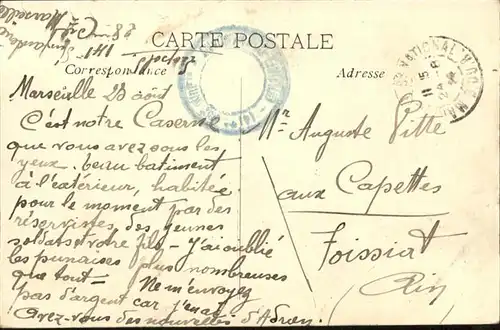 Marseille
CARTE POSTALE
Correspondance
Adresse
Marseille 23 août
C'est notre Caserne
que vous avez sous les
yeux. beau batiment
à l'extérieur, habitée
pour le moment par des
réservistes, des jeunes
soldats et votre fils - J'ai oublié
les punaises plus nombreuses
que tout = Ne m'envoyez
pas d'argent car j'en ai
Avez-vous des nouvelles d'Adrien.
Mr Auguste Pitte
aux Capettes
Foissiat
Ain